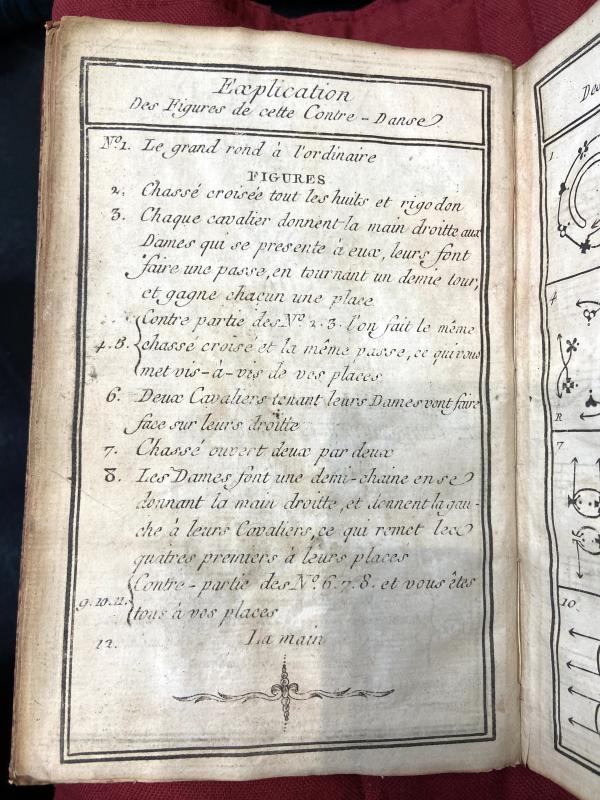 Explication
Des Figures de cette Contre-Danse
Nº1. Le grand rond à l'ordinaire
FIGURES
2. Chassé croisée tout les huits et rigodon
3. Chaque cavalier donnent la main droitte aux
Dames qui se presente à eux, leurs font
faire une passe, en tournant un demie tour,
et gagne chacun une place
Contre partie des Nº 2. 3. l'on fait le même
4. 5. chassé croisé et la même passe, ce qui vous
met vis-à-vis de vos places
6. Deux Cavaliers tenant leurs Dames vont faire
face sur leurs droitte
7. Chassé ouvert deux par deux
8. Les Dames font une demi-chaine en se
donnant la main droitte, et donnent la gau-
che à leurs Cavaliers, ce qui remet les
quatres premiers à leurs places
Contre-partie des Nº 6. 7. 8. et vous êtes
9. 10. 11. tous à vos places
12. La main
Des
1
4
R
7
10